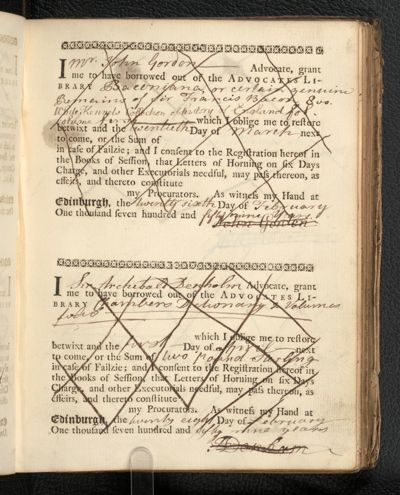 I Mr. John Gordon Advocate, grant
me to have borrowed out of the ADVOCATES LI-
BRARY Baconiana, or certain genuine
Remains of Sir Francis Bacon 8vo.
which I oblige me to restore
betwixt and the twentieth Day of March next
to come, or the Sum of
in case of Failzie; and I consent to the Registration hereof in
the Books of Session, that Letters of Horning on six Days
Charge, and other Executorials needful, may pass thereon, as
effeirs, and thereto constitute
my Procurators. As witness my Hand at
Edinburgh, the twenty sixth Day of February
One thousand seven hundred and fifty nine years
John Gordon
I Sir Archibald Denholm Advocate, grant
me to have borrowed out of the ADVOCATES LI-
BRARY Chambers Dictionary 2 Volumes
folio
which I oblige me to restore
betwixt and the first Day of next
to come, or the Sum of two pound Sterling
in case of Failzie; and I consent to the Registration hereof in
the Books of Session, that Letters of Horning on six Days
Charge, and other Executorials needful, may pass thereon, as
effeirs, and thereto constitute
my Procurators. As witness my Hand at
Edinburgh, the twenty eight Day of February
One thousand seven hundred and fifty nine years